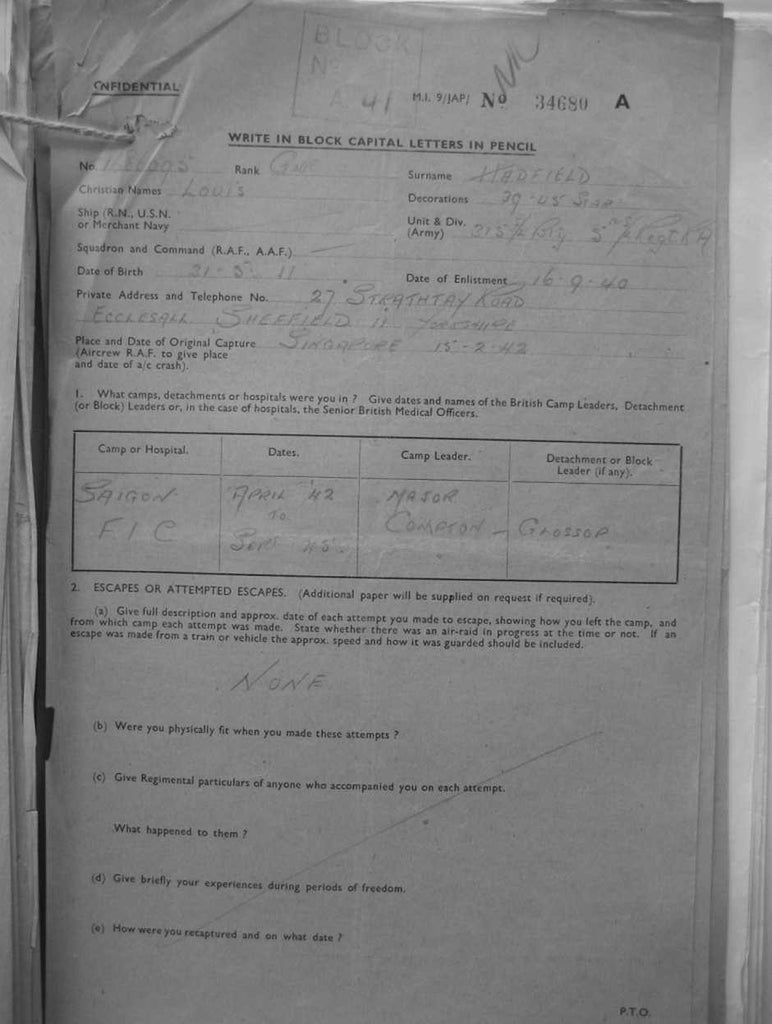 BLOCK
No
A. 41
CNFIDENTIAL
M.I. 9/JAP/ No 34680 A
WRITE IN BLOCK CAPITAL LETTERS IN PENCIL
No. Rank GNR Surname HADFIELD
Christian Names LOUIS Decorations 39-45 STAR
Ship (R.N., U.S.N. or Merchant Navy Unit & Div. (Army)
Squadron and Command (R.A.F., A.A.F.)
Date of Birth 31-5-11 Date of Enlistment 16-9-40
Private Address and Telephone No. 27 STRATHTAY ROAD
ECCLESALL SHEFFIELD 11 YORKSHIRE
Place and Date of Original Capture SINGAPORE 15-2-42
(Aircrew R.A.F. to give place
and date of a/c crash).
1. What camps, detachments or hospitals were you in ? Give dates and names of the British Camp Leaders, Detachment
(or Block) Leaders or, in the case of hospitals, the Senior British Medical Officers.
Camp or Hospital. Dates. Camp Leader. Detachment or Block Leader (if any).
SAIGON APRIL '42 MAJOR
F I C TO COMPTON - GLOSSOP
SEPT 45.
2. ESCAPES OR ATTEMPTED ESCAPES. (Additional paper will be supplied on request if required).
(a) Give full description and approx. date of each attempt you made to escape, showing how you left the camp, and
from which camp each attempt was made. State whether there was an air-raid in progress at the time or not. If an
escape was made from a train or vehicle the approx. speed and how it was guarded should be included.
NONE
(b) Were you physically fit when you made these attempts ?
(c) Give Regimental particulars of anyone who accompanied you on each attempt.
What happened to them ?
(d) Give briefly your experiences during periods of freedom.
(e) How were you recaptured and on what date ?
P.T.O.